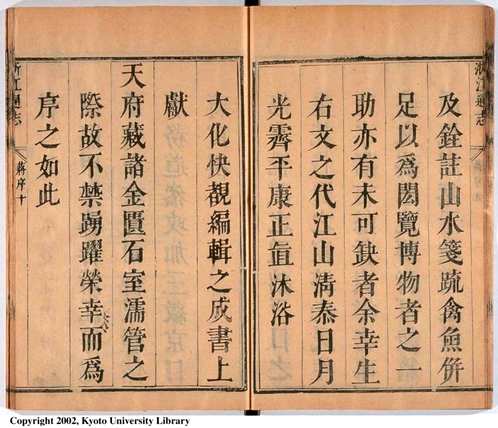 浙江通志
及銓註山水箋疏禽魚併
足以爲閎覽博物者之一
助亦有未可缺者余幸生
右文之代江山清泰日月
光霽平康正直沐浴
大化快覩編輯之成書上
獻
天府藏諸金匱石室濡管之
際故不禁踴躍榮幸而爲
序之如此
浙江通志
蔣序十
Copyright 2002, Kyoto University Library